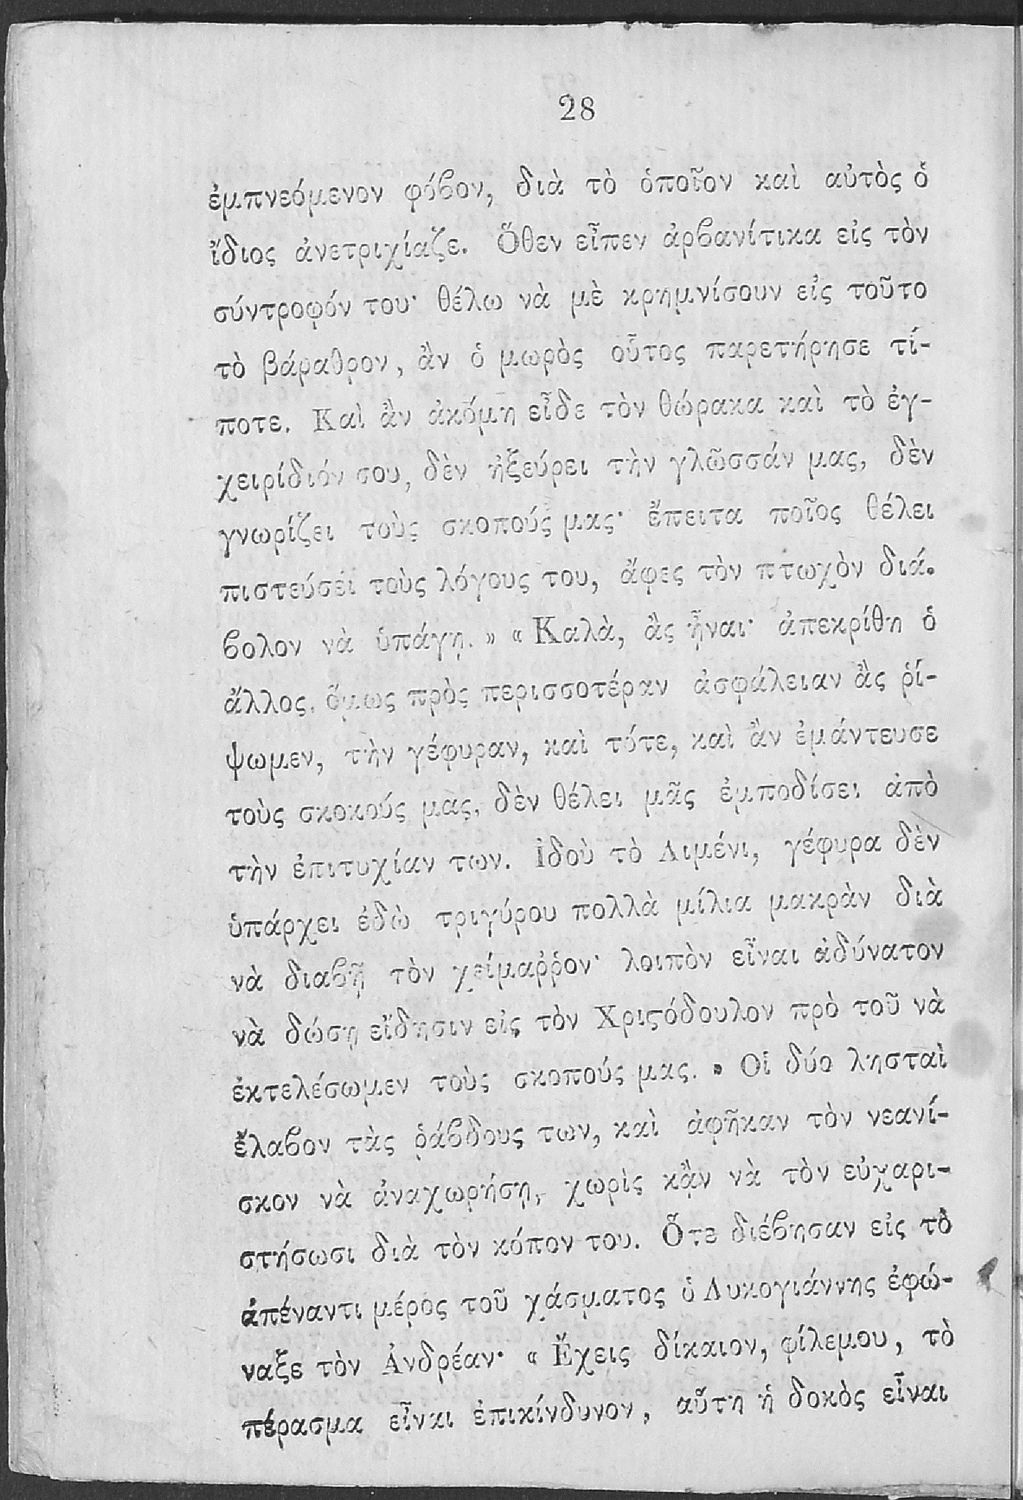 28
ἐμπνεόμενον φόβον, διὰ τὸ ὁποῖον καὶ αὐτὸς ὁ
ἴδιος ἀνετριχίαζε. Ὅθεν εἶπεν ἀρβανίτικα εἰς τὸν
σύντροφόν του· θέλω νὰ μὲ κρημνίσουν εἰς τοῦτο
τὸ βάραθρον, ἂν ὁ μωρὸς οὗτος παρετήρησε τί-
ποτε. Καὶ ἂν ἀκόμη εἶδε τὸν θώρακα καὶ τὸ ἐγ-
χειρίδιόν σου, δὲν ἠξεύρει τὴν γλῶσσάν μας, δὲν
γνωρίζει τοὺς σκοπούς μας· ἔπειτα ποῖος θέλει
πιστεύσει τοὺς λόγους του, ἄφες τὸν πτωχὸν διά.
βολον νὰ ὑπάγῃ. » « Καλὰ, ἂς ἦναι· ἀπεκρίθη ὁ
ἄλλος, ὅμως πρὸς περισσοτέραν ἀσφάλειαν ἂς ῥί-
ψωμεν, τὴν γέφυραν, καὶ τότε, καὶ ἂν ἐμάντευσε
τοὺς σκοκούς μας, δὲν θέλει μᾶς ἐμποδίσει ἀπὸ
τὴν ἐπιτυχίαν των. Ἰδοὺ τὸ Λιμένι, γέφυρα δὲν
ὑπάρχει ἐδὼ τριγύρου πολλὰ μίλια μακρὰν διὰ
νὰ διαβῇ τὸν χείμαῤῥον· λοιπὸν εἶναι ἀδύνατον
νὰ δώσῃ εἴδησιν εἰς τὸν Χριϛόδουλον πρὸ τοῦ νὰ
ἐκτελέσωμεν τοὺς σκοπούς μας. » Οἱ δύο λησταὶ
ἔλαβον τὰς ῥάβδους των, καὶ ἀφῆκαν τὸν νεανί-
σκον νὰ ἀναχωρήσῃ, χωρὶς κᾂν νὰ τὸν εὐχαρι-
στήσωσι διὰ τὸν κόπον του. Ὅτε διέβησαν εἰς τὸ
ἀπέναντι μέρος τοῦ χάσματος ὁ Λυκογιάννης ἐφώ-
ναξε τὸν Ἀνδρέαν· « Ἔχεις δίκαιον, φίλεμου, τὸ
πέρασμα εἶναι ἐπικίνδυνον, αὕτη ἡ δοκὸς εἶναι